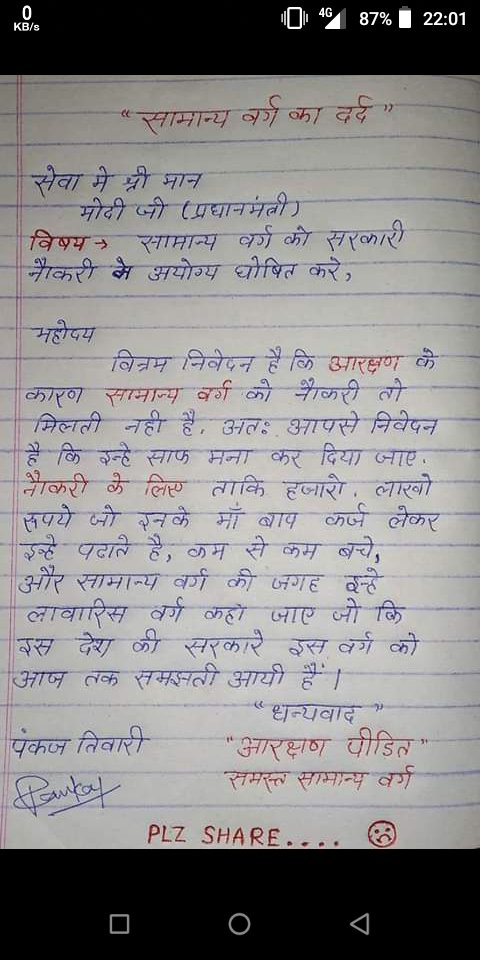 0
KB/s
4G
87%
22:01
"सामान्य वर्ग का दर्द"
सेवा मे श्री मान
मोदी जी (प्रधानमंत्री)
विषय → सामान्य वर्ग को सरकारी
नौकरी मे अयोग्य घोषित करे,
महोदय
विनम्र निवेदन है कि आरक्षण के
कारण सामान्य वर्ग को नौकरी तो
मिलती नही है. अतः आपसे निवेदन
है कि इन्हे साफ मना कर दिया जाए.
नौकरी के लिए ताकि हजारो. लाखो
रूपये जो इनके माँ बाप कर्ज लेकर
इन्हे पढाते है, कम से कम बचे,
और सामान्य वर्ग की जगह इन्हे
लावारिस वर्ग कहा जाए जो कि
इस देश की सरकारे इस वर्ग को
आज तक समझती आयी हैं।
"धन्यवाद"
पंकज तिवारी "आरक्षण पीडित"
Pankaj समस्त सामान्य वर्ग
PLZ SHARE....